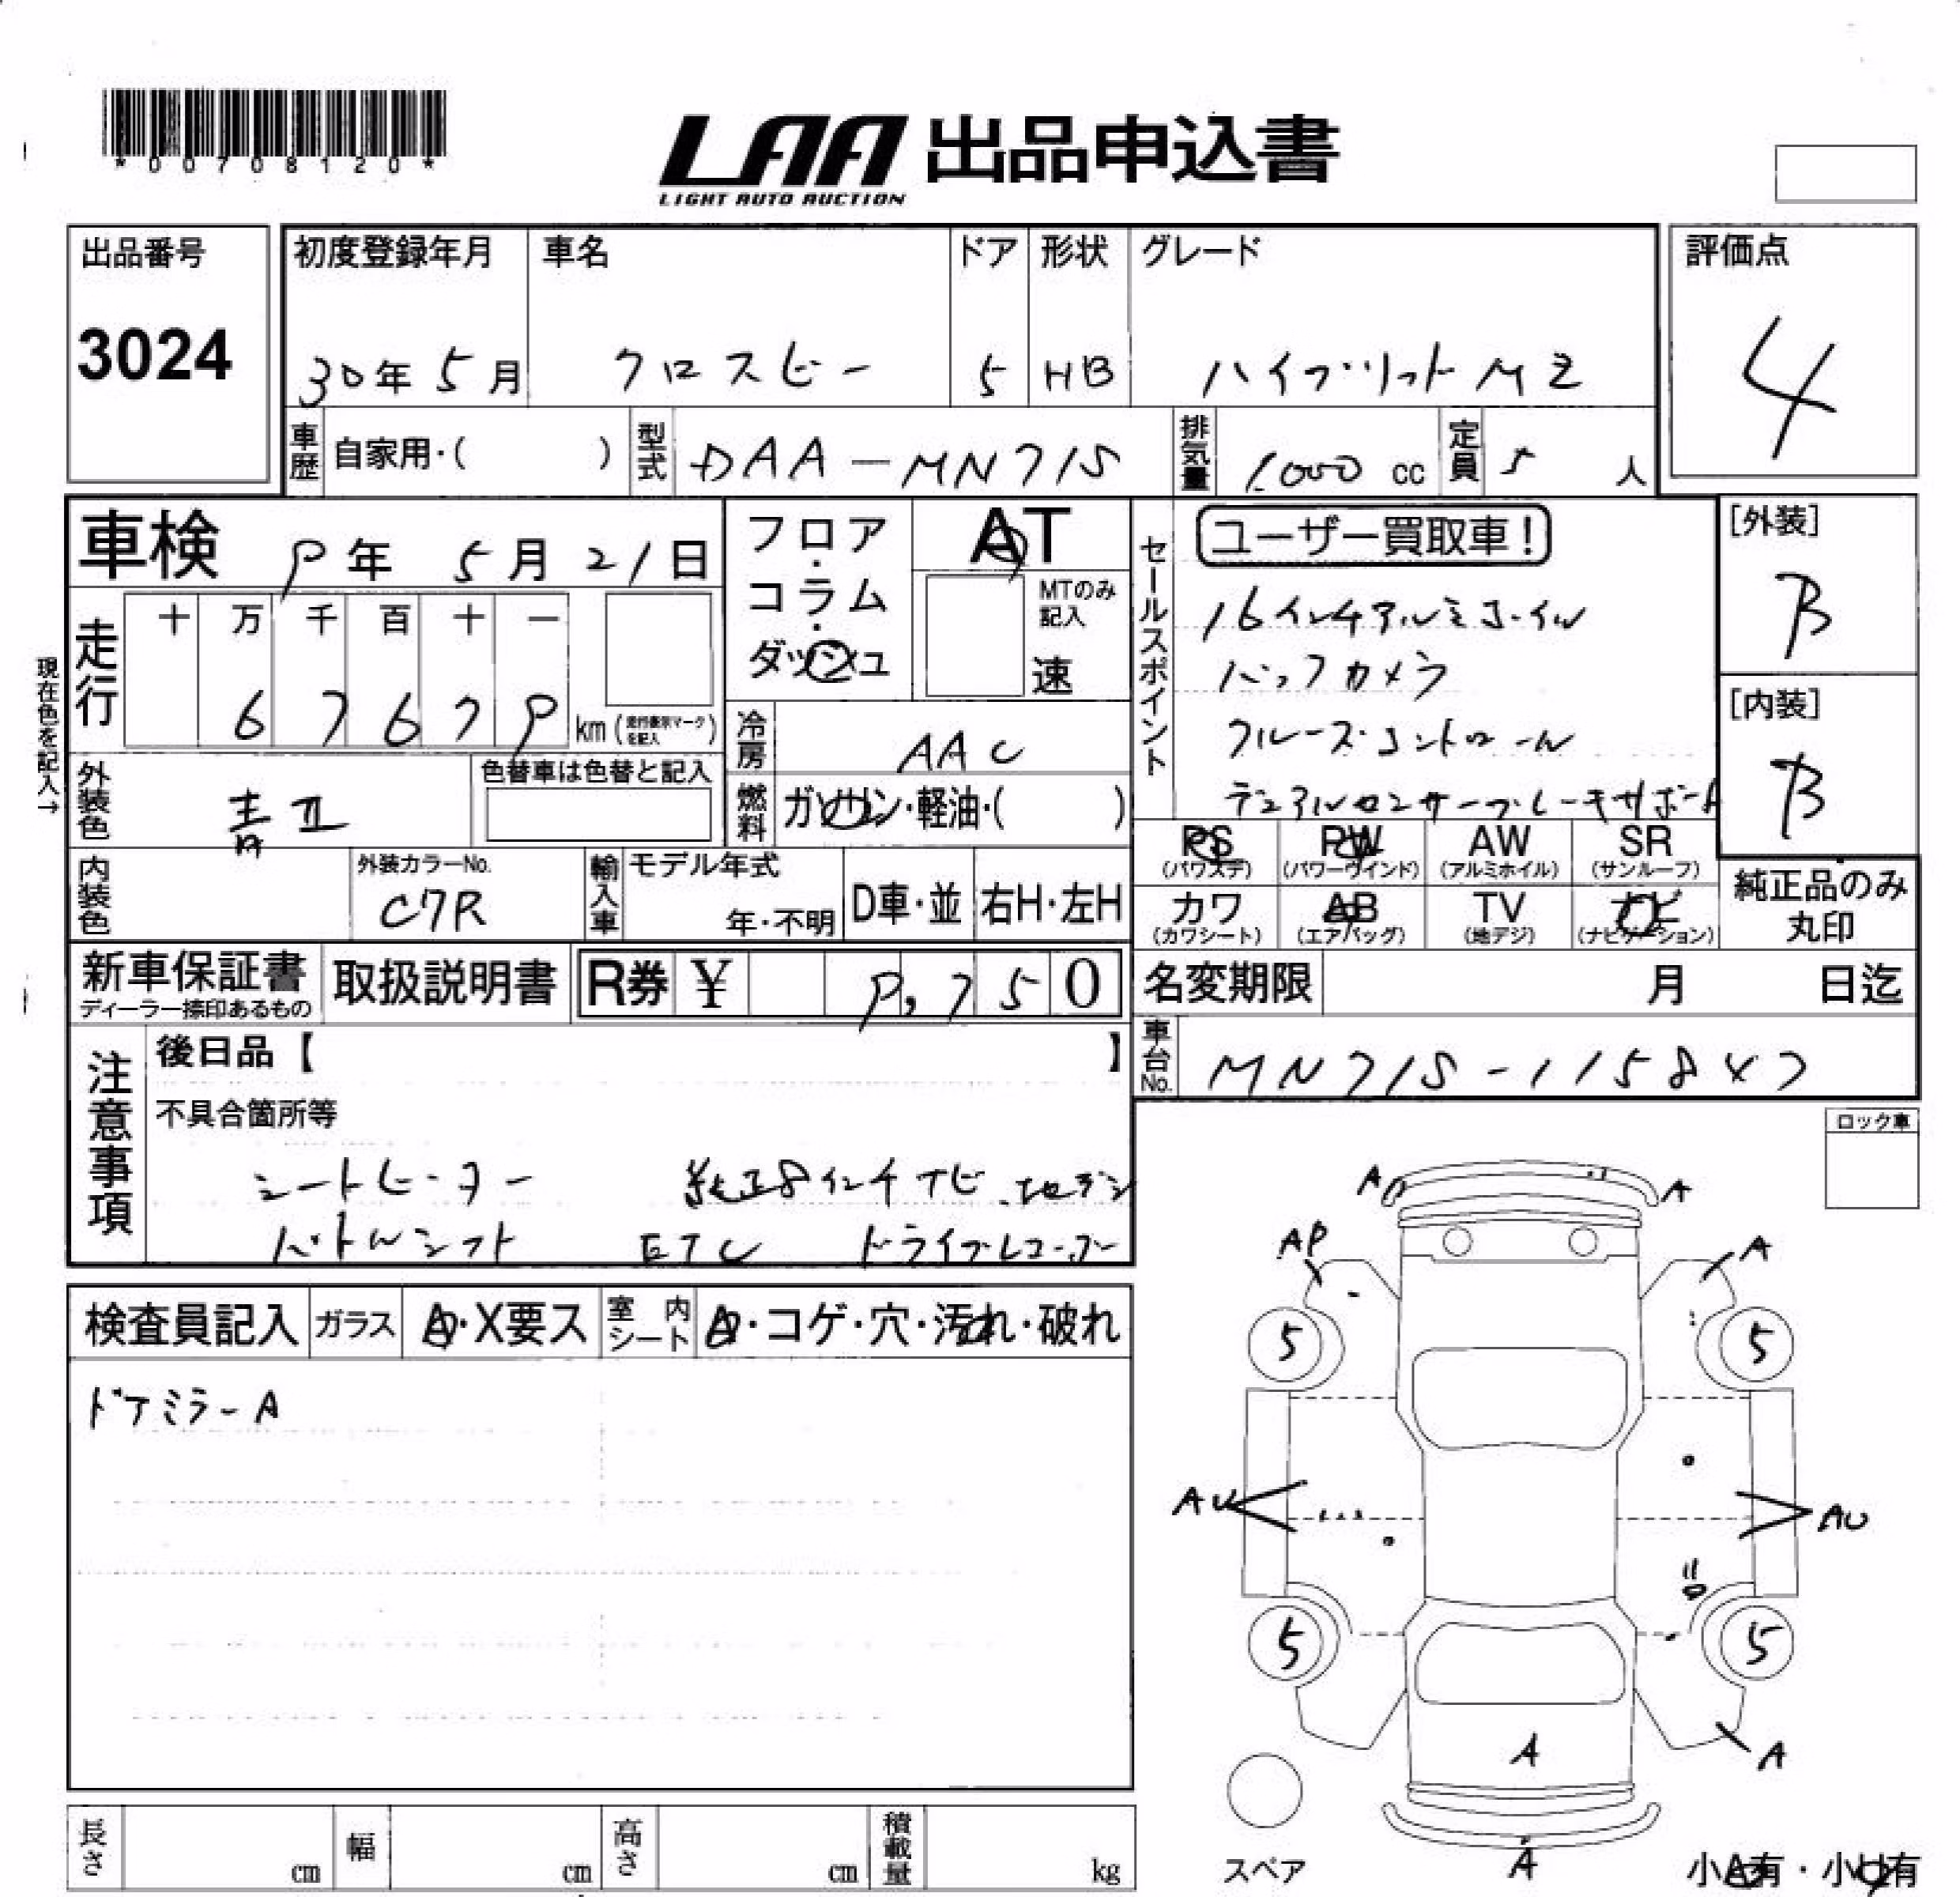 *00708120*
LAA 出品申込書
LIGHT AUTO AUCTION
出品番号
3024
初度登録年月
30年 5月
車名
クロスビー
ドア
5
形状
HB
グレード
ハイブリット MZ
評価点
4
車歴
自家用・( )
型式
DAA-MN71S
排気量
1.000 cc
定員
5 人
車検 9年 5月 21日
フロア・コラム・ダッシュ
AT
MTのみ
記入
速
セールスポイント
ユーザー買取車!
16インチアルミホイル
バックカメラ
クルーズコントロール
デュアルセンサーブレーキサポート
[外装]
B
[内装]
B
走行
十 万 千 百 十 一
6 7 6 7 9 km (走行表示マークを記入)
現在色を記入→
冷房
AAC
外装色
青II
色替車は色替と記入
燃料
ガソリン・軽油・( )
PS
(パワステ)
PW
(パワーウインド)
AW
(アルミホイル)
SR
(サンルーフ)
カワ
(カワシート)
AB
(エアバッグ)
TV
(地デジ)
ナビ
(ナビゲーション)
純正品のみ
丸印
内装色
外装カラーNo.
C7R
輸入車
モデル年式
年・不明
D車・並
右H・左H
新車保証書
ディーラー捺印あるもの
取扱説明書
R券 ¥ 9,750
名変期限 月 日迄
車台No.
MN71S-1158X7
注意事項
後日品【 】
不具合箇所等
シートヒーター 純正8インチナビ 地デジ
パドルシフト ETC ドライブレコーダー
ロック車
検査員記入
ガラス
A・X要ス
室内シート
A・コゲ・穴・汚れ・破れ
ドアミラーA
A A
AP A
5 5
AU AU
5 5
A A
A
スペア
小A有・小U有
長さ cm
幅 cm
高さ cm
積載量 kg